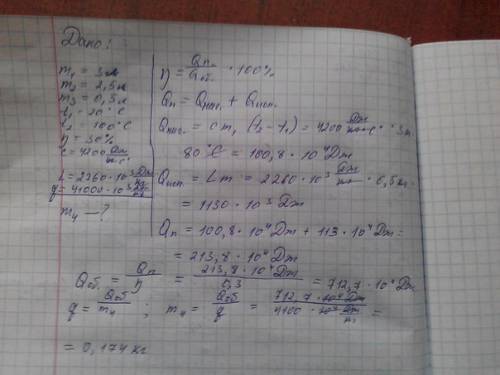 Дано:
m₁ = 3л
m₂ = 2,5л
m₃ = 0,5л
t₁ = 20°C
t₂ = 100°C
η = 30%
c = 4200 Дж/кг·°C
L = 2260·10³ Дж/кг
q = 41000·10³ Дж/кг
m₄ — ?
η = Qп./Qоб. · 100%
Qп = Qнаг. + Qисп.
Qнаг. = cm₁ (t₂ - t₁) = 4200 Дж/кг·°C · 3кг
80°C = 100,8 · 10⁴ Дж
Qисп. = Lm = 2260 · 10³ Дж/кг · 0,5кг =
= 1130 · 10³ Дж
Qп = 100,8 · 10⁴ Дж + 113 · 10⁴ Дж =
= 213,8 · 10⁴ Дж
Qоб. = Qп/η = 213,8 · 10⁴ Дж/0,3 = 712,7 · 10⁴ Дж
q = Qоб/m₄ ; m₄ = Qоб/q = 712,7 · 10⁴ Дж/4100 · 10⁴ Дж/кг =
= 0,174 кг